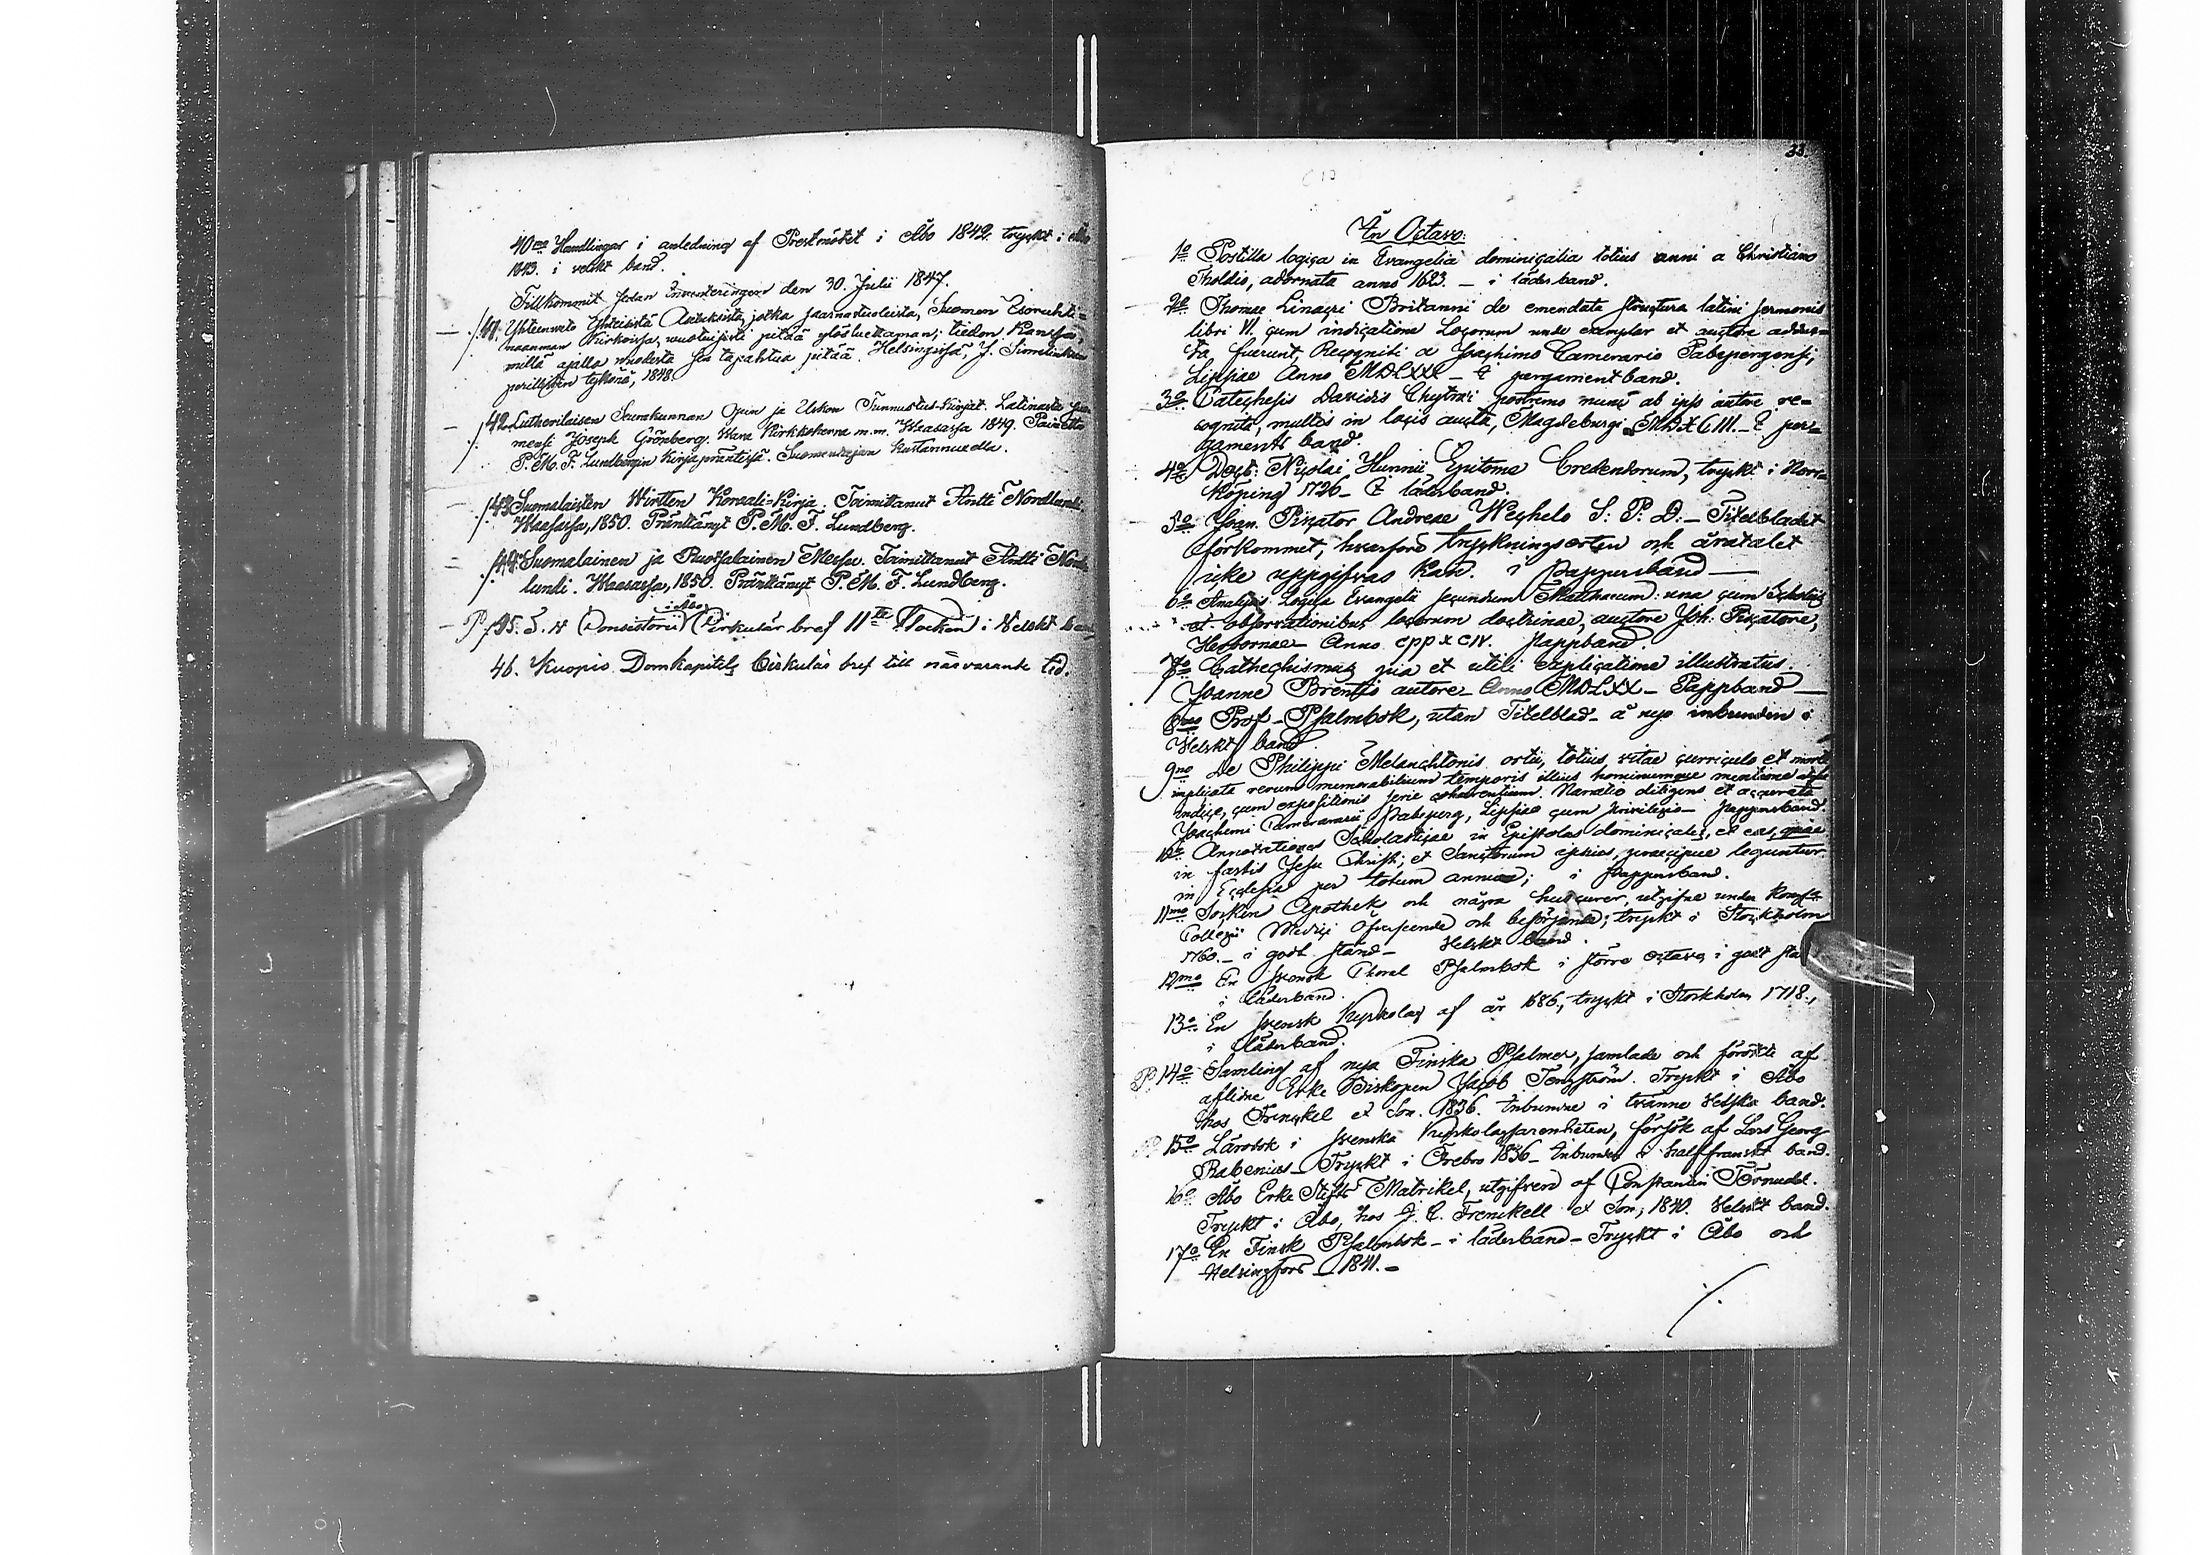 40mo Handlingar i anledning af Prestmötet i Åbo 1842. tryckt i Åbo
1843. i velskt band.
Tillkommit sedan Inventeringen den 30. Julii 1847.
41. Yhteenweto Yhteisistä Asetuksista, jotka saarnatuoleista, Suomen Esoruhti-
naanman Kirkoissa, wuotuisesti pitää ylösluettaman; tiedon kanssa,
millä ajalla wuodesta sen tapahtua pitää. Helsingissä, J. Simeliuksen
perillisten tykönä, 1848.
42. Lutherilaisen Seurakunnan Opin ja Uskon Tunnustus-Kirjat. Latinasta suo-
mensi Joseph Grönberg. Wara Kirkkoherra m.m. Waasassa 1849. Painettu
P. M. F. Lundbergin Kirjapräntissä. Suomentajan kustannuella.
43. Suomalaisten Wirtten Koraali-Kirja. Toimittanut Antti Nordlund.
Waasassa, 1850. Präntännyt P. M. F. Lundberg.
44. Suomalainen ja Ruotsalainen Messu. Toimittanut Antti Nord-
lundi. Waasassa, 1850. Präntännyt P. M. F. Lundberg.
i Åbo
P. 45. Consistorii Cirkulär bref 11te Flocken i Velskt band
46. Kuopio Domkapitels Cirkulär bref till närvarande tid.
33.
In Octavo.
1o Postilla logica in Evangelia dominicalia totius anni a Christiano
Tholdio, adornata anno 1623. – i läderband.
2o Thomae Linacri Britanni de emendata structura latini sermonis
libri VI. cum indicatione Locorum unde exemplar et auctore adduc-
ta fuerunt, Recogniti a Joachimo Camerario Pabepergensi,
Lipsiae Anno MDLXXX – I pergamentband.
3o Catechesis Davidis Chytraei postremo nunc ab ipso autore re-
cognita, multis in locis aucta, Magdeburgi MDXCIII. – I per-
gaments band.
4o Doct: Nicolai Hunnii Epitome Credendorum, tryckt i Norr-
köping 1726 – I läderband.
5o Joan. Piscator Andreae Wechelo S: P: D: – Titelbladet
förkommet, hvarföre tryckningsorten och årtalet
icke uppgifvas kan. i Pappersband —
6o Analysis Logica Evangelii secundum Matthaeum: una cum Scholiis
et observationibus locorum doctrinae, auctore Joh: Piscatore,
Herbornae Anno. pappband.
7o Cathechismus pia et utili explicatione illustratus.
Joanne Brentio autore – Anno MDLXX – Pappband —
8vo Prof-Psalmbok, utan Titelblad – å nyo inbunden i
Velskt band.
9no De Philippi Melanchtonis ortu, totius vitae curriculo et morte
implicata rerum memorabilium temporis illius hominumque mentione
indice, cum expositionis serie cohaerentium. Narratio diligens et accurata
Joachimi Camerarii Pabeperg, Lipsiae cum privilegio – pappersband.
10o Annotationes Scholasticae in Epistolas dominicales, et eas, quae
in festis Jesu Christi; et Sanctorum ejus, praecipue leguntur
in Ecclesia per totum annum; i Pappersband.
11mo Socken Apothek och några huscurer, utgifne under Kongl.
Collegii Medici Öfverseende och besörjande; tryckt i Stockholm
1760. – i godt stånd – Velskt band.
12mo En Svensk Choral Psalmbok i större octav, i godt stå
i läderband.
13o En Svensk Kyrkolag af år 1686, tryckt i Stockholm 1718.,
i läderband.
P. 14o Samling af nya Finska Psalmer, samlade och försökte af
aflidne Erke Biskopen Jacob Tengström. Tryckt i Åbo
hos Frenckel et Son. 1836. Inbundne i tvänne Velska band.
15o Lärobok i Svenska Kyrkolagfarenheten, försök af Lars Georg
Rabenius – Tryckt i Örebro 1836 – Inbunden i halffranskt band.
16o Åbo Erke Stifts Matrikel, utgifven af Constantin Törnudd.
Tryckt i Åbo, hos J. C. Frenckell et Son; 1840. Velskt band.
17o En Finsk Psalmbok – i läderband – Tryckt i Åbo och
Helsingfors – 1841. –